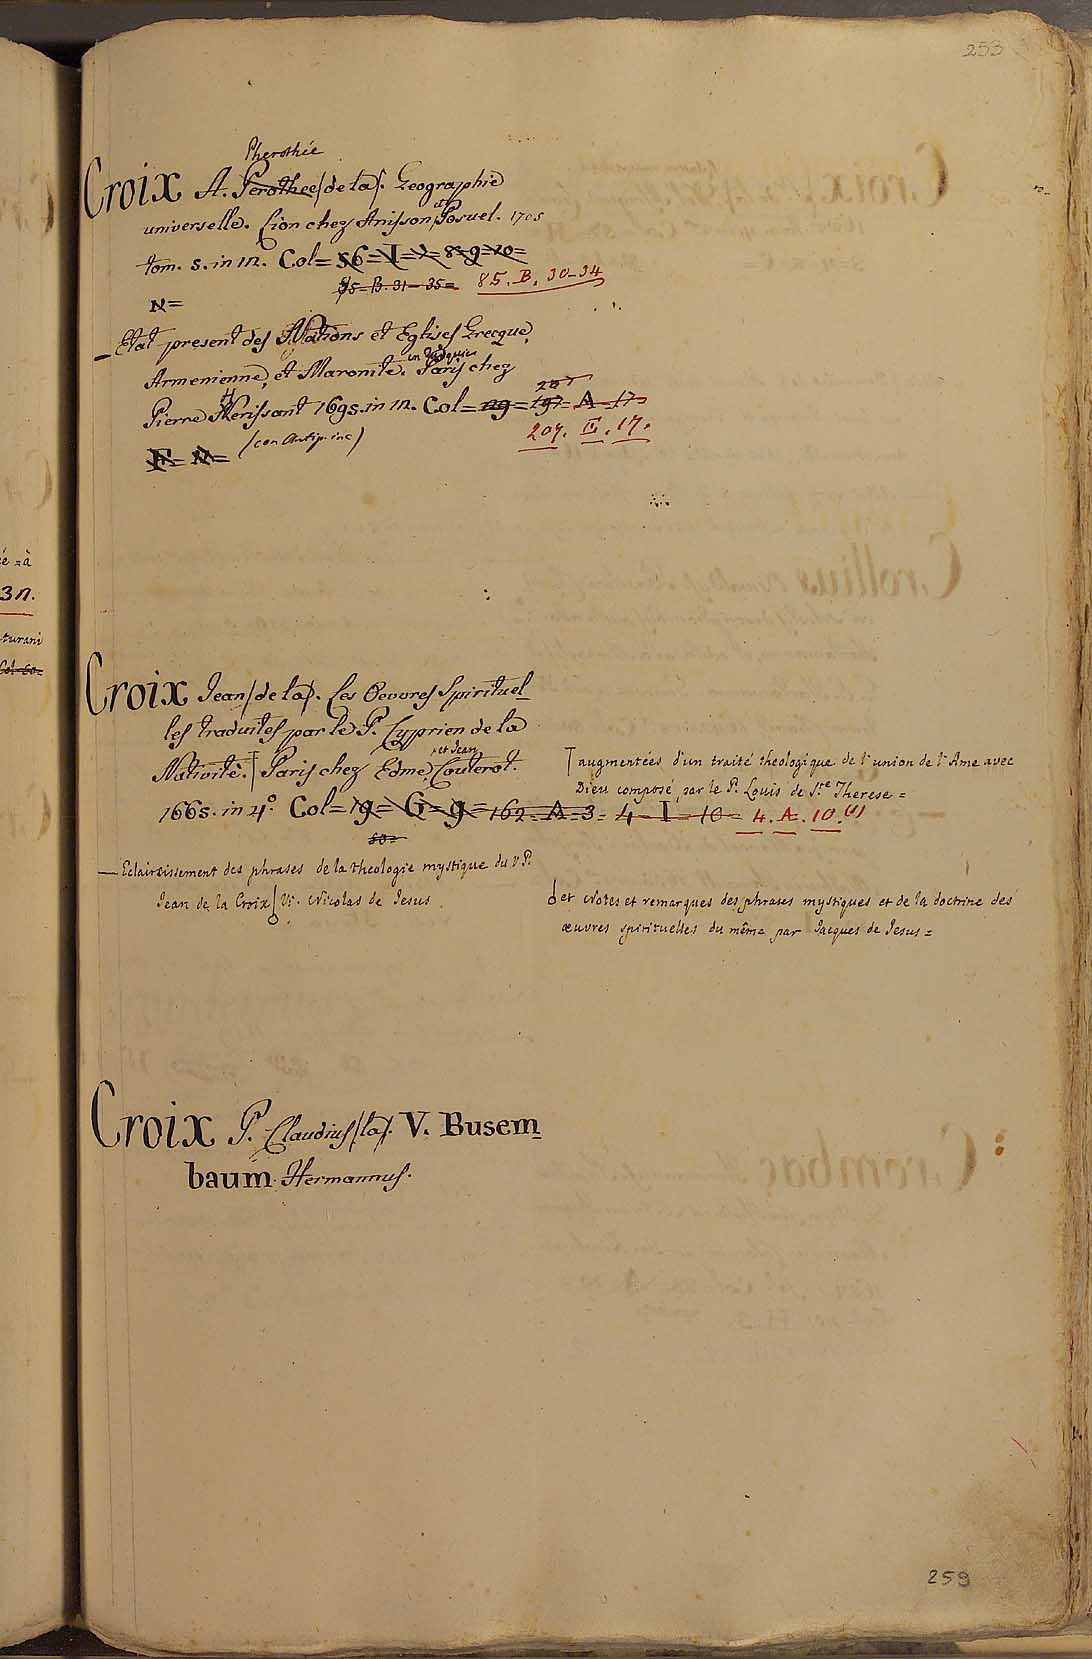 253
Pherothée
Croix A. Perothee (de la). Geographie
universelle. Lion chez Anisson et Posuel. 1705
tom. 5. in 12. Col= 56=I=
85=B. 31-35= 85. B. 30-34
N=
Etat present des Nations et Eglises Grecque,
Armenienne, et Maronite. en Turquie Paris chez
Pierre Herissant 1695. in 12. Col= 29= 197= A-17
207. E. 17.
F= N= (con Antip. inc)
Croix Jean (de la). Les Oeuvres Spirituel-
les traduites par le P. Cyprien de la
Nativité. Paris chez Edme, et Jean Couterot.
augmentées d'un traité theologique de l'union de l'Ame avec
Dieu composé par le P. Louis de Ste Therese=
1665. in 4º. Col= 19= G= 9= 162=A=3= 4-I-10= 4. A. 10. (1)
60=
Eclaircissement des phrases de la theologie mystique du V. P.
Jean de la Croix V. Nicolas de Jesus
et Notes et remarques des phrases mystiques et de la doctrine des
œuvres spirituelles du même par Jacques de Jesus=
Croix P. Claudius (la). V. Busem-
baum Hermannus.
259
é=à
3n.
turani
Col=60=